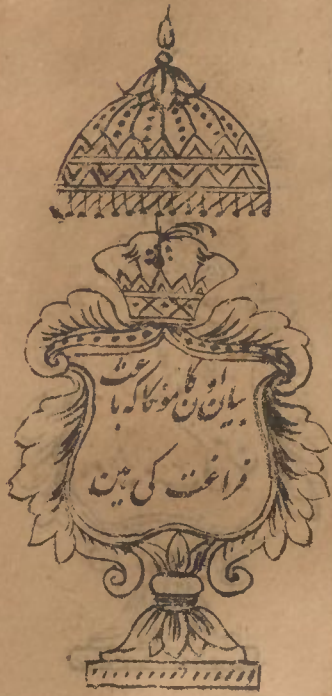 بیان اون کامونکا کہ باعث
فراغت کی ہین